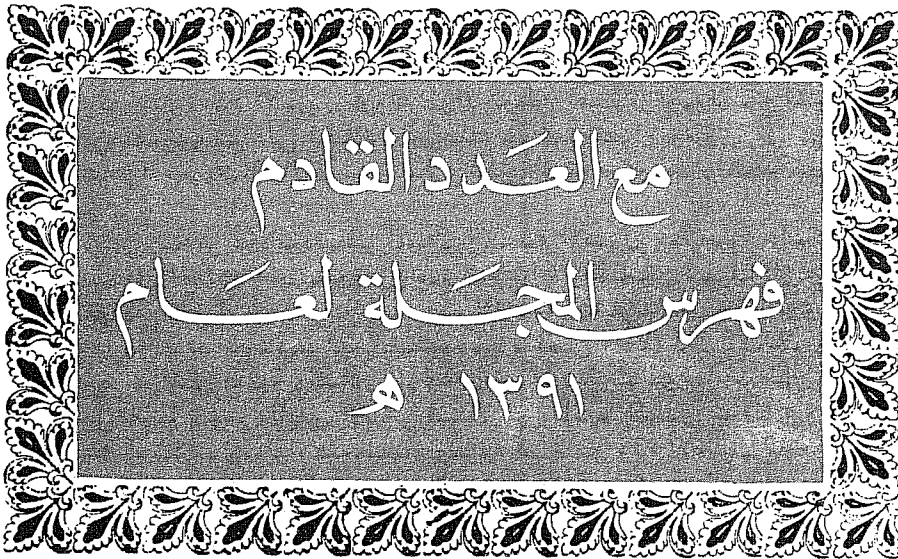 مع العدد القادم
فهرس المجلة لعام
١٣٩١ هـ